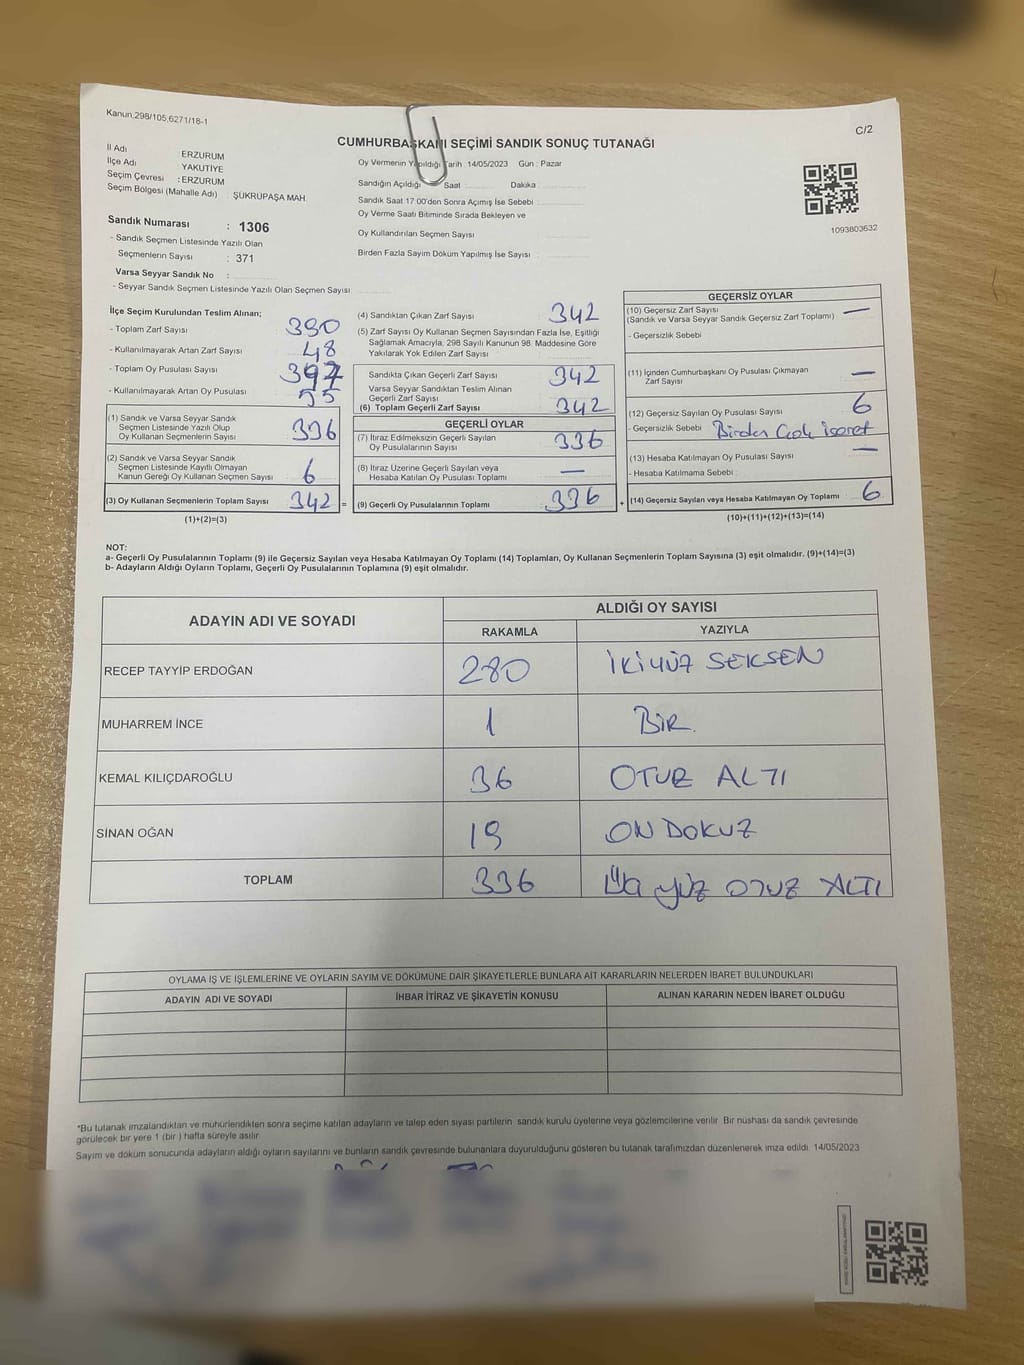 Kanun,298/105,6271/18-1
C/2
CUMHURBAŞKANI SEÇİMİ SANDIK SONUÇ TUTANAĞI
İl Adı ERZURUM
İlçe Adı YAKUTİYE
Seçim Çevresi : ERZURUM
Seçim Bölgesi (Mahalle Adı) ŞÜKRÜPAŞA MAH.
Oy Vermenin Yapıldığı Tarih 14/05/2023 Gün : Pazar
Sandığın Açıldığı Saat Dakika
Sandık Saat 17:00'den Sonra Açımış İse Sebebi
Oy Verme Saati Bitiminde Sırada Bekleyen ve
Oy Kullandırılan Seçmen Sayısı
Birden Fazla Sayım Döküm Yapılmış İse Sayısı
1093803632
Sandık Numarası : 1306
- Sandık Seçmen Listesinde Yazılı Olan
Seçmenlerin Sayısı : 371
Varsa Seyyar Sandık No :
- Seyyar Sandık Seçmen Listesinde Yazılı Olan Seçmen Sayısı
İlçe Seçim Kurulundan Teslim Alınan;
- Toplam Zarf Sayısı 390
- Kullanılmayarak Artan Zarf Sayısı 48
- Toplam Oy Pusulası Sayısı 397
- Kullanılmayarak Artan Oy Pusulası 55
(1) Sandık ve Varsa Seyyar Sandık
Seçmen Listesinde Yazılı Olup
Oy Kullanan Seçmenlerin Sayısı 336
(2) Sandık ve Varsa Seyyar Sandık
Seçmen Listesinde Kayıtlı Olmayan
Kanun Gereği Oy Kullanan Seçmen Sayısı 6
(3) Oy Kullanan Seçmenlerin Toplam Sayısı 342 =
(1)+(2)=(3)
(4) Sandıktan Çıkan Zarf Sayısı 342
(5) Zarf Sayısı Oy Kullanan Seçmen Sayısından Fazla İse, Eşitliği
Sağlamak Amacıyla, 298 Sayılı Kanunun 98. Maddesine Göre
Yakılarak Yok Edilen Zarf Sayısı
Sandıkta Çıkan Geçerli Zarf Sayısı 342
Varsa Seyyar Sandıktan Teslim Alınan
Geçerli Zarf Sayısı
(6) Toplam Geçerli Zarf Sayısı 342
GEÇERLİ OYLAR
(7) İtiraz Edilmeksizin Geçerli Sayılan
Oy Pusulalarının Sayısı 336
(8) İtiraz Üzerine Geçerli Sayılan veya
Hesaba Katılan Oy Pusulası Toplamı —
(9) Geçerli Oy Pusulalarının Toplamı 336 +
GEÇERSİZ OYLAR
(10) Geçersiz Zarf Sayısı —
(Sandık ve Varsa Seyyar Sandık Geçersiz Zarf Toplamı)
- Geçersizlik Sebebi
(11) İçinden Cumhurbaşkanı Oy Pusulası Çıkmayan
Zarf Sayısı —
(12) Geçersiz Sayılan Oy Pusulası Sayısı 6
- Geçersizlik Sebebi Birden Çok İşaret
(13) Hesaba Katılmayan Oy Pusulası Sayısı —
- Hesaba Katılmama Sebebi
(14) Geçersiz Sayılan veya Hesaba Katılmayan Oy Toplamı 6
(10)+(11)+(12)+(13)=(14)
NOT:
a- Geçerli Oy Pusulalarının Toplamı (9) ile Geçersiz Sayılan veya Hesaba Katılmayan Oy Toplamı (14) Toplamları, Oy Kullanan Seçmenlerin Toplam Sayısına (3) eşit olmalıdır. (9)+(14)=(3)
b- Adayların Aldığı Oyların Toplamı, Geçerli Oy Pusulalarının Toplamına (9) eşit olmalıdır.
ADAYIN ADI VE SOYADI ALDIĞI OY SAYISI
RAKAMLA YAZIYLA
RECEP TAYYİP ERDOĞAN 280 İKİYÜZ SEKSEN
MUHARREM İNCE 1 BİR.
KEMAL KILIÇDAROĞLU 36 OTUZ ALTI
SİNAN OĞAN 19 ON DOKUZ
TOPLAM 336 Üç yüz OTUZ ALTI
OYLAMA İŞ VE İŞLEMLERİNE VE OYLARIN SAYIM VE DÖKÜMÜNE DAİR ŞİKAYETLERLE BUNLARA AİT KARARLARIN NELERDEN İBARET BULUNDUKLARI
ADAYIN ADI VE SOYADI İHBAR İTİRAZ VE ŞİKAYETİN KONUSU ALINAN KARARIN NEDEN İBARET OLDUĞU
*Bu tutanak imzalandıktan ve mühürlendikten sonra seçime katılan adayların ve talep eden siyasi partilerin sandık kurulu üyelerine veya gözlemcilerine verilir. Bir nüshası da sandık çevresinde
görülecek bir yere 1 (bir ) hafta süreyle asılır.
Sayım ve döküm sonucunda adayların aldığı oyların sayılarını ve bunların sandık çevresinde bulunanlara duyurulduğunu gösteren bu tutanak tarafımızdan düzenlenerek imza edildi. 14/05/2023